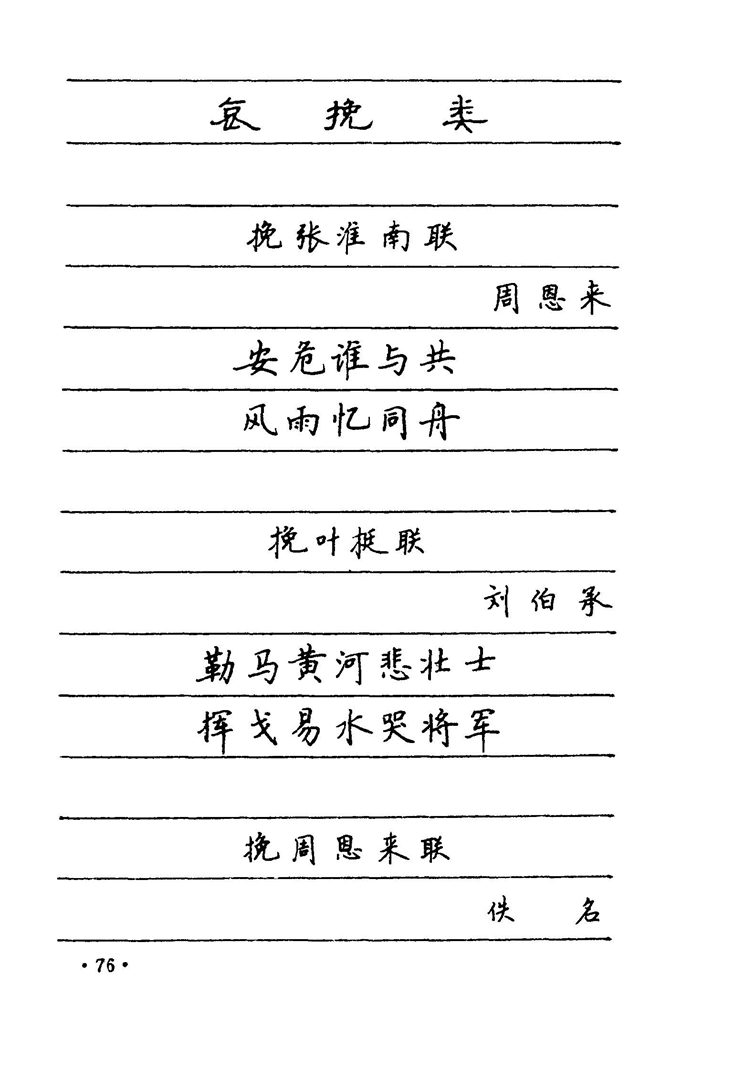 哀 挽 类
挽张淮南联
周恩来
安危谁与共
风雨忆同舟
挽叶挺联
刘伯承
勒马黄河悲壮士
挥戈易水哭将军
挽周恩来联
佚 名
·76·